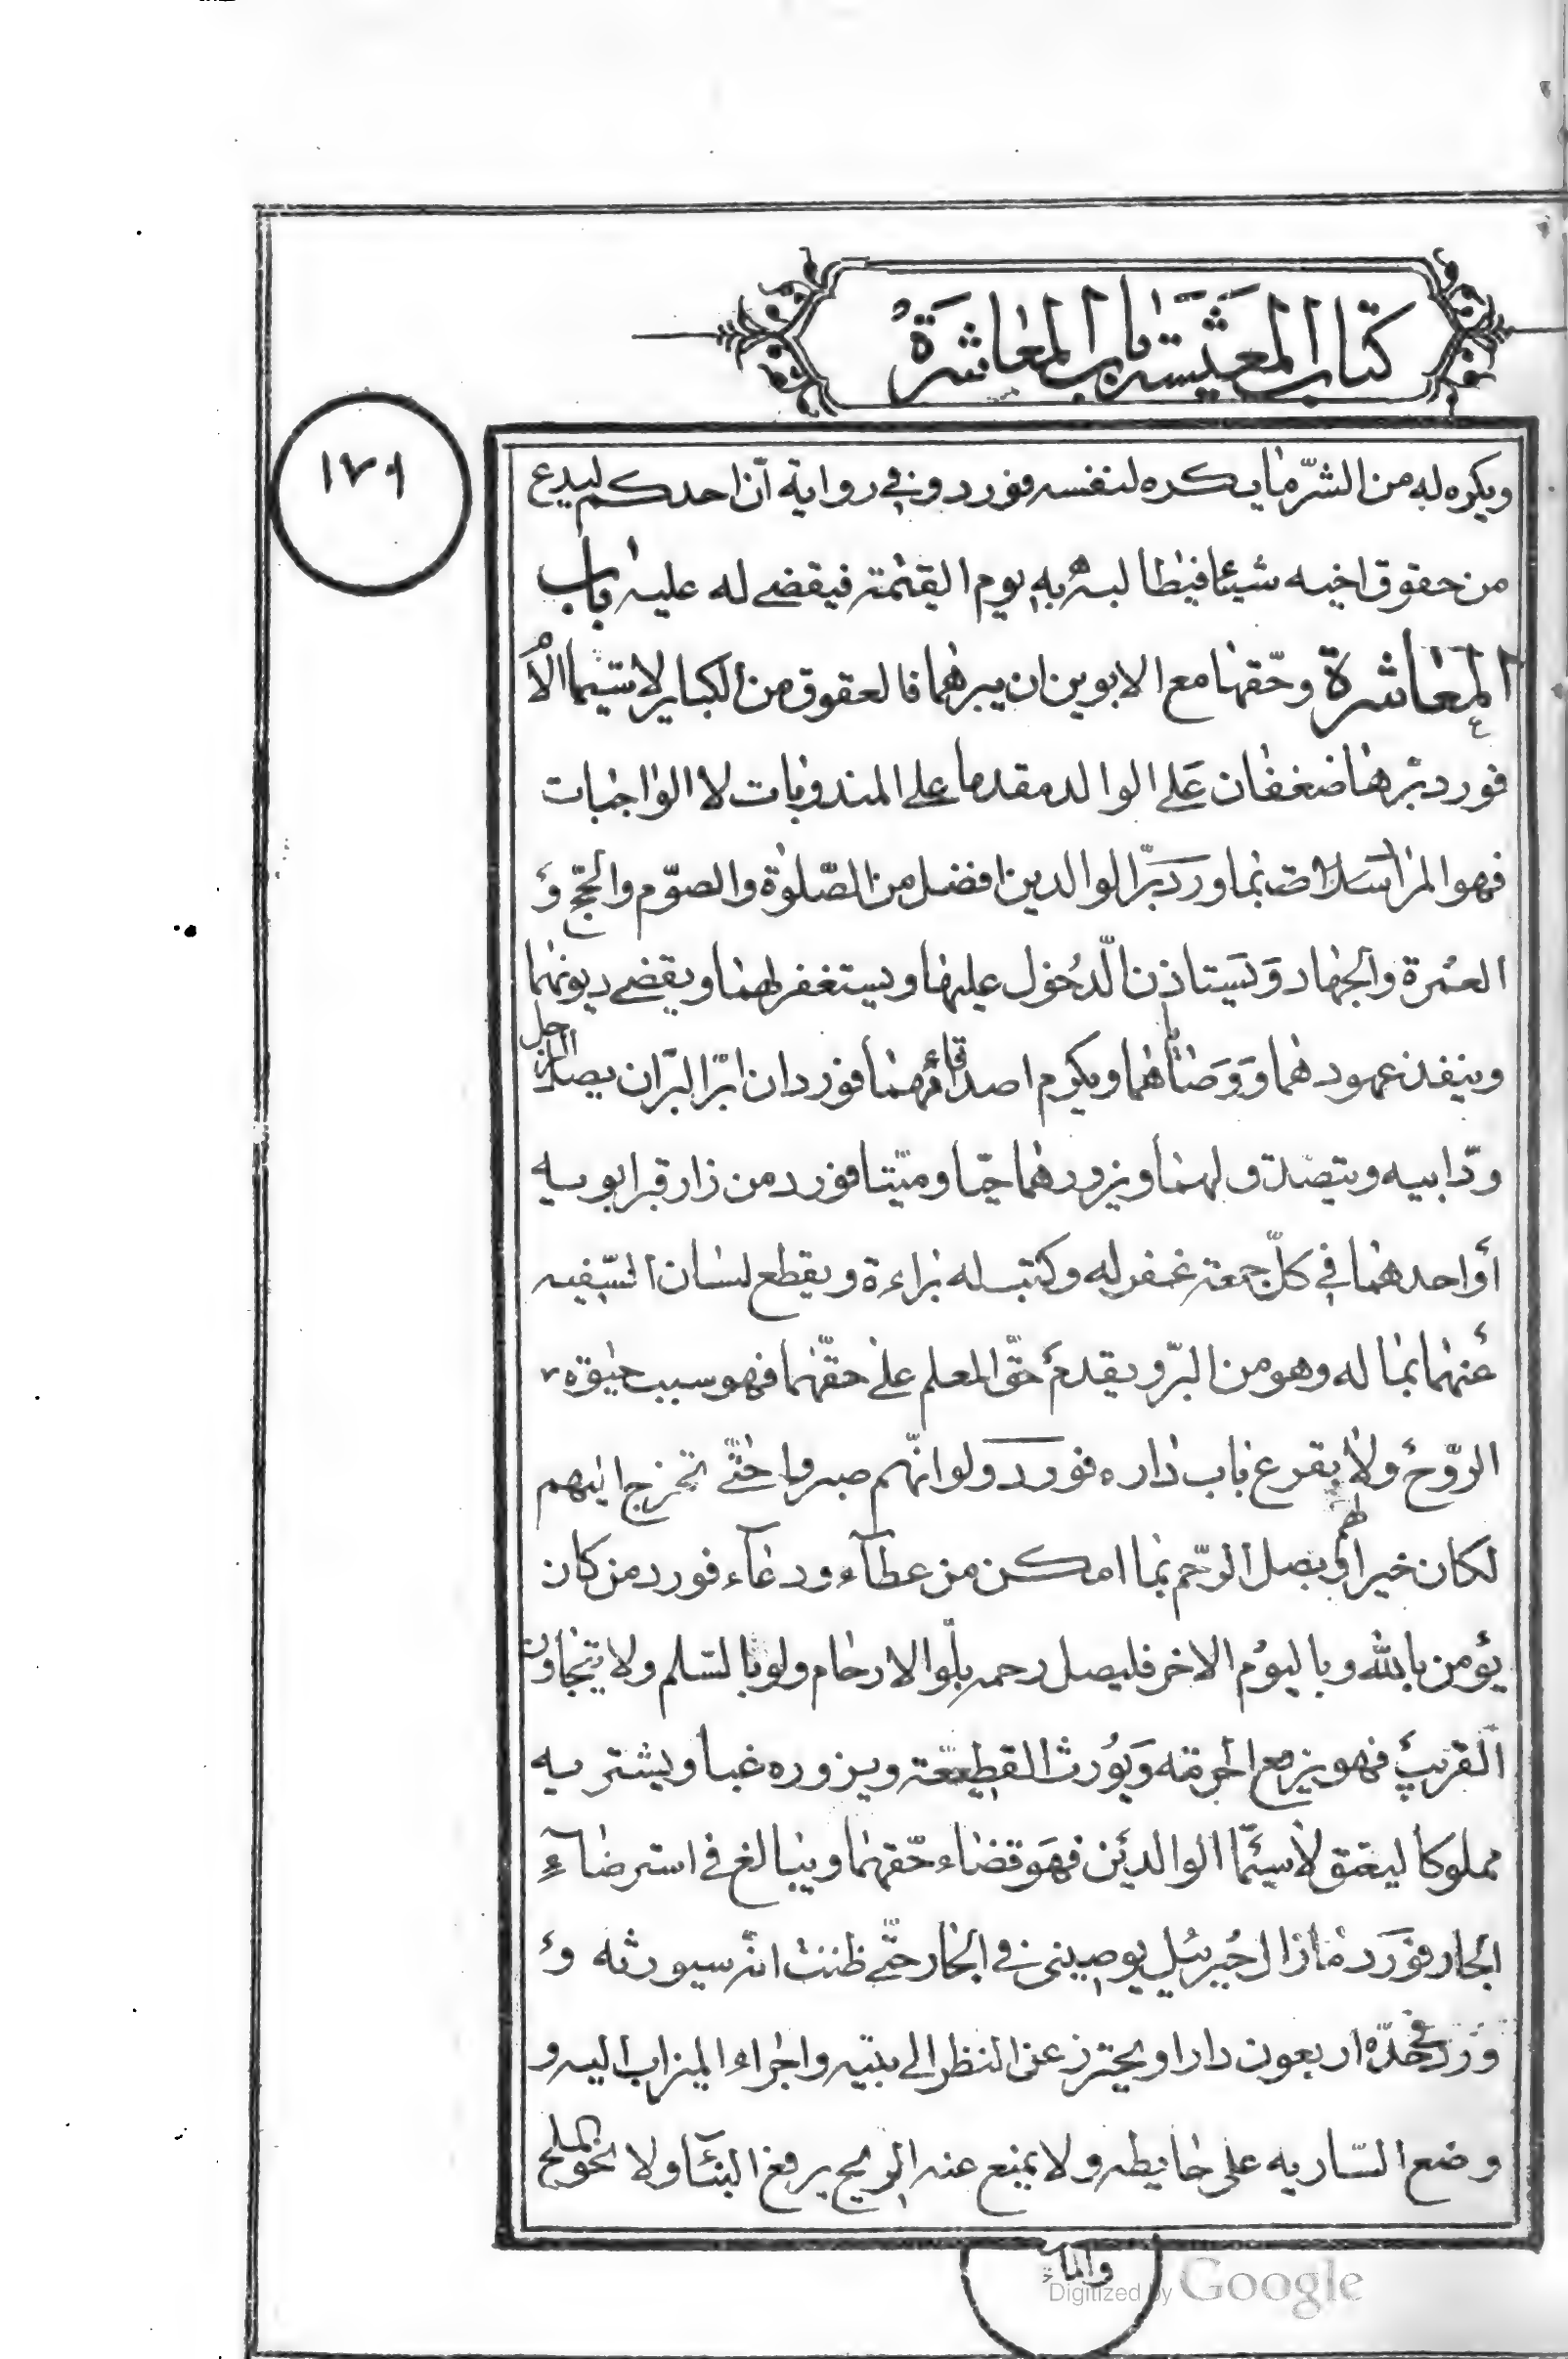 كتاب المعيشة باب المعاشرة
١٧٩
ويكره له من الشرّ ما يكره لنفسه فورد وفي رواية انّ احدكم ليدع
من حقوق اخيه شيئا فيطالبه به يوم القيمة فيقضى له عليه باب
المعاشرة وحقّها مع الابوين ان يبرهما فالعقوق من الكباير لا سيّما الأمّ
فورد برّها ضعفان على الوالد مقدما على المندوبات لا الواجبات
فهو المراد بما ورد برّ الوالدين افضل من الصّلوة والصوّم والحجّ و
العمرة والجهاد ويستاذن الدّخول عليهما ويستغفر لهما ويقضى ديونهما
وينفذ عهودهما ووصاياهما ويكرم اصدقائهما فورد ان ابرّ البرّ ان يصل الرّجل
ودّ ابيه ويتصدق لهما ويزورهما حيّا وميّتا فورد من زار قبر ابويه
أو احدهما في كلّ جمعة غفر له وكتب له براءة ويقطع لسان السّفيه
عنهما بماله وهو من البرّ ويقدم حقّ المعلم على حقّهما فهو سبب حيوة
الرّوح ولا يقرع باب داره فورد ولو انّهم صبروا حتّى تخرج اليهم
لكان خيرا لهم ويصل الرّحم بما امكن من عطاء ودعاء فورد من كان
يؤمن بالله وباليوم الاخر فليصل رحمه بلّوا الارحام ولو بالسّلم ولا يتجاور
القريب فهو يزيح الحرمة ويورث القطيعة ويزوره غبا ويشتريه
مملوكا ليعتق لا سيّما الوالدين فهو قضاء حقّهما ويبالغ في استرضاء
الجار فورد ما زال جبرئيل يوصيني في الجار حتّى ظننت انّه سيورثه و
ورد في حدّه اربعون دارا ويحترز عن النظر الى بيته واجراء الميزاب اليه و
وضع السّاريه على حايطه ولا يمنع عنه الريح برفع البناء ولا نحو الملح
والماء
Digitized by Google